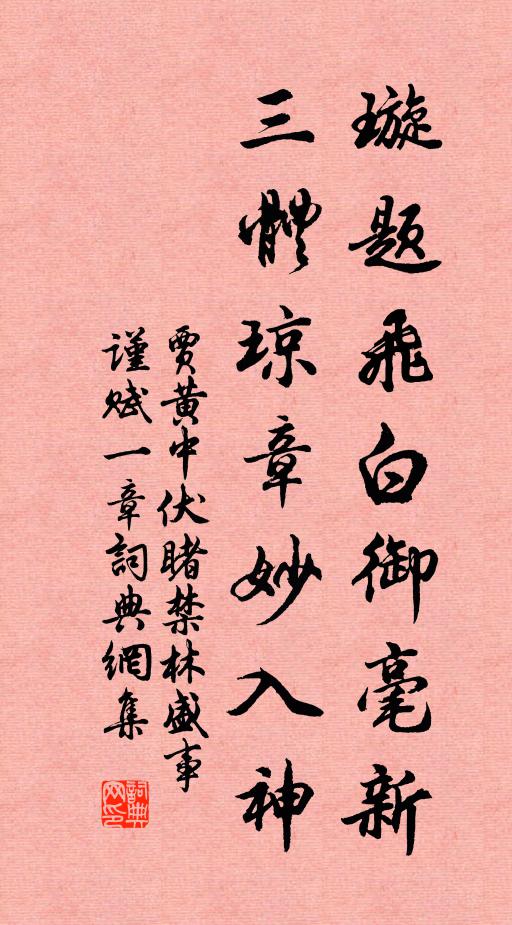 璇題飛白御毫新
三體琼章妙入神
賈黃中伏睹禁林盛事
謹赋一章詞典網集
詞典
网印